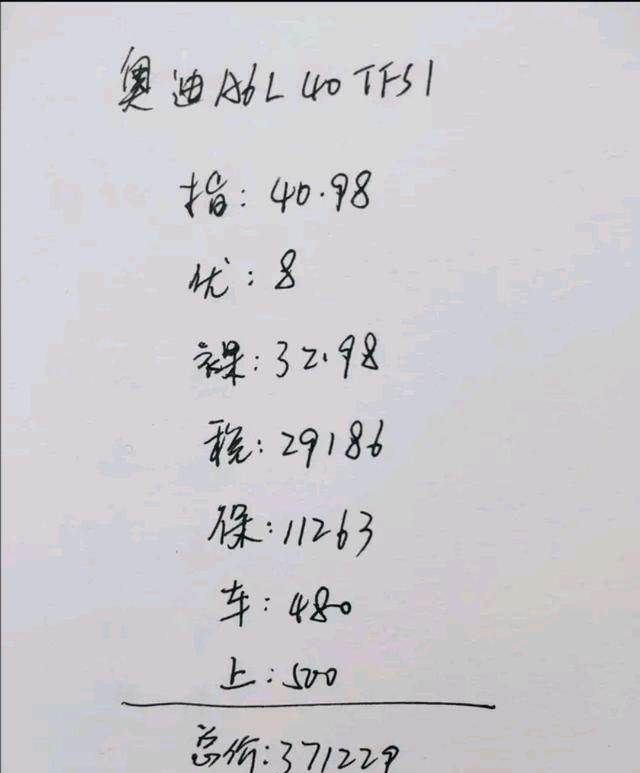 奥迪A6L 40 TFSI
指: 40.98
优: 8
裸: 32.98
税: 29186
保: 11263
车: 480
上: 500
总价: 371229